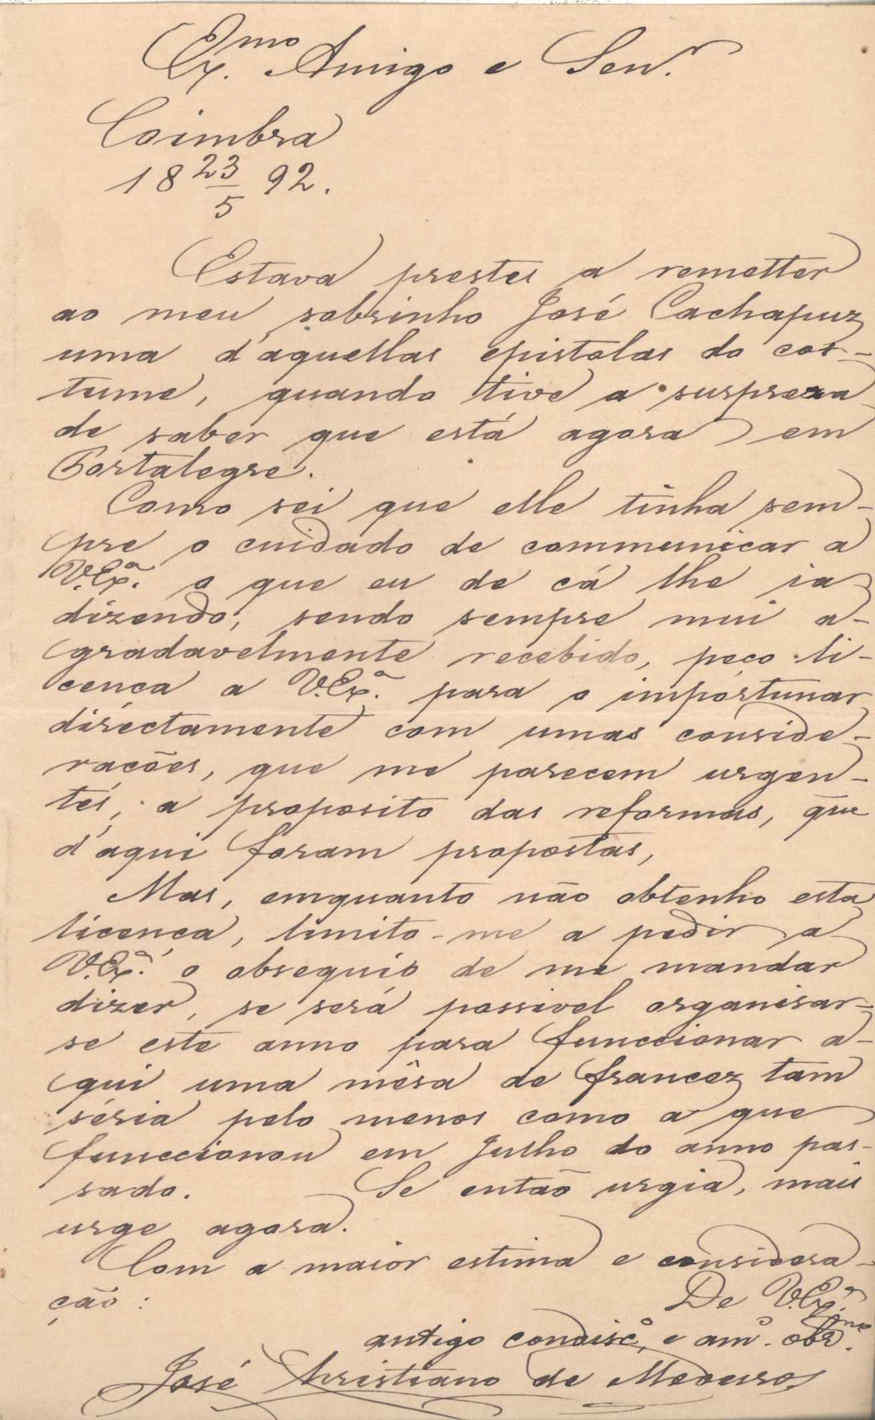 Ex.mo Amigo e Sen.r
Coimbra
18 23/5 92.
Estava prestes a remetter
ao meu sobrinho José Cachapuz
uma d'aquellas epistolas do cos-
tume, quando tive a surpreza
de saber que está agora em
Portalegre.
Como sei que elle tinha sem-
pre o cuidado de communicar a
V.Ex.a o que eu de cá lhe ia
dizendo, sendo sempre mui a-
gradavelmente recebido, peço li-
cença a V.Ex.a para o importunar
directamente com umas conside-
rações, que me parecem urgen-
tes, a proposito das reformas, que
d'aqui foram propostas,
Mas, emquanto não obtenho esta
licença, limito-me a pedir a
V.Ex.a o obsequio de me mandar
dizer, se será possivel organisar-
se este anno para funccionar a-
qui uma mêsa de francez tam
séria pelo menos como a que
funccionou em Julho do anno pas-
sado. Se então urgia, mais
urge agora.
Com a maior estima e considera-
ção:
De V.Ex.a
antigo condisc.o e am.o obr.mo
José Christiano de Medeiros